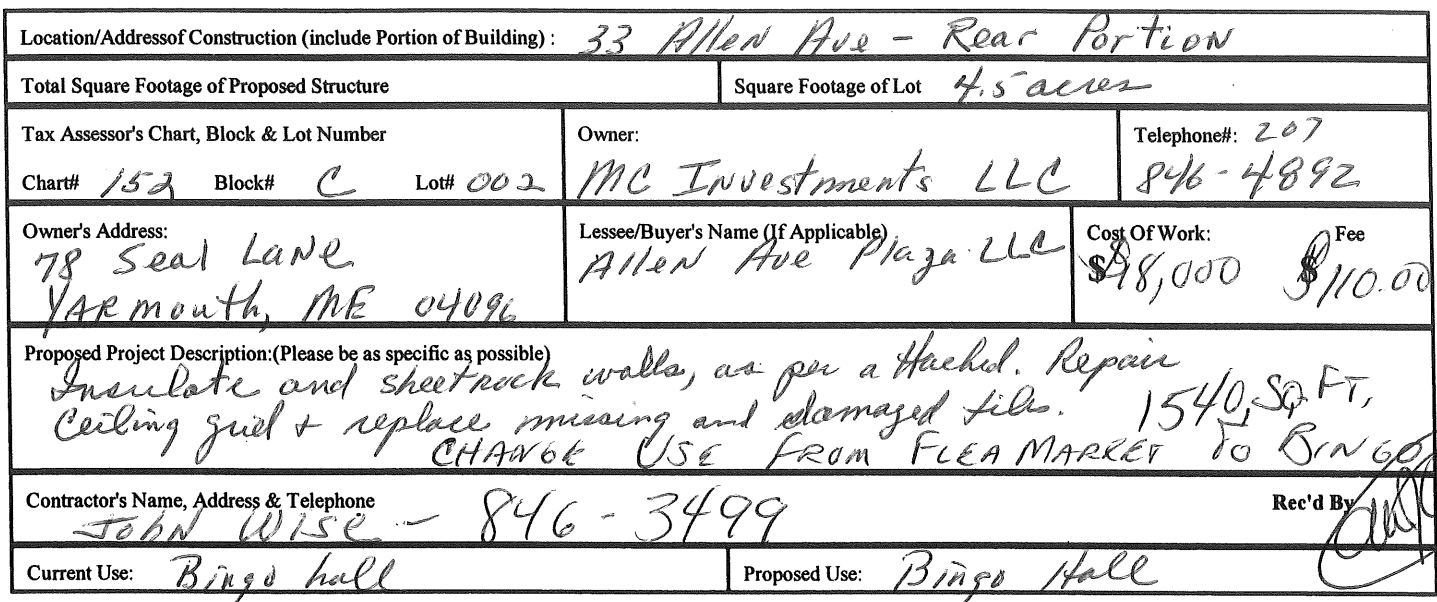 Location/Addressof Construction (include Portion of Building) : 33 Allen Ave - Rear Portion
Total Square Footage of Proposed Structure
Square Footage of Lot 4.5 acres
Tax Assessor's Chart, Block & Lot Number
Chart# 152 Block# C Lot# 002
Owner:
MC Investments LLC
Telephone#: 207
846-4892
Owner's Address:
78 Seal Lane
Yarmouth, ME 04096
Lessee/Buyer's Name (If Applicable)
Allen Ave Plaza LLC
Cost Of Work:
$18,000
Fee
$110.00
Proposed Project Description:(Please be as specific as possible)
Insulate and sheetrock walls, as per attached. Repair
Ceiling grid + replace missing and damaged tiles. 1540 SQ FT,
CHANGE USE FROM FLEA MARKET TO BINGO
Contractor's Name, Address & Telephone
John Wise - 846-3499
Rec'd By
Current Use: Bingo hall
Proposed Use: Bingo Hall